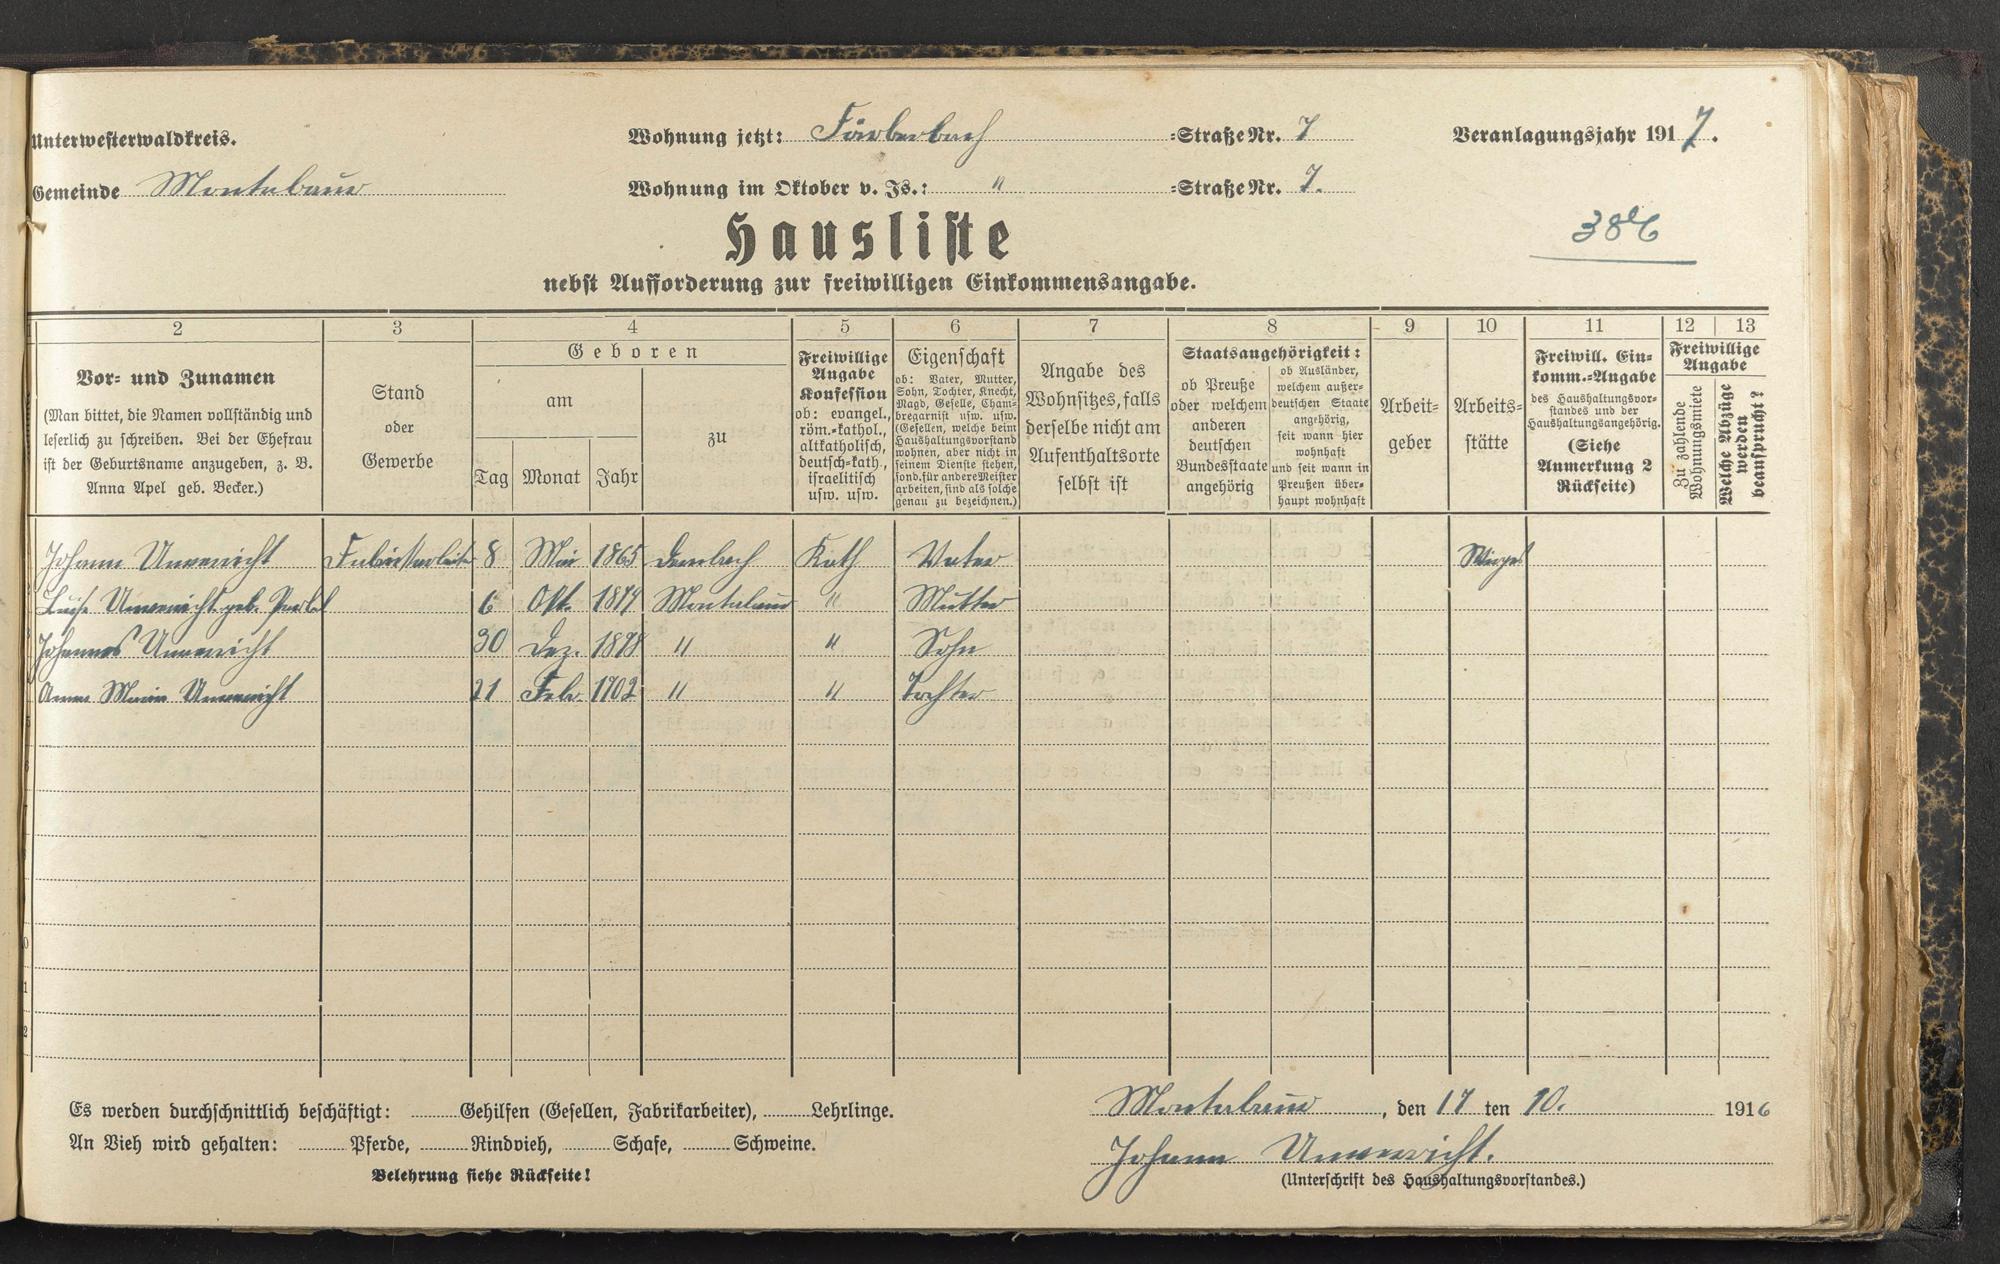 Unterwesterwaldkreis.
Wohnung jetzt: Färberbach =Straße Nr. 7
Veranlagungsjahr 1917.
Gemeinde Montabaur
Wohnung im Oktober v. Js.: " =Straße Nr. 7.
Hausliste
nebst Aufforderung zur freiwilligen Einkommensangabe.
2 3 4 5 6 7 8 9 10 11 12 13
Vor- und Zunamen
(Man bittet, die Namen vollständig und
leserlich zu schreiben. Bei der Ehefrau
ist der Geburtsname anzugeben, z. B.
Anna Apel geb. Becker.)
Stand
oder
Gewerbe
Geboren
am
Tag Monat Jahr
zu
Freiwillige
Angabe
Konfession
ob: evangel.,
röm.-kathol.,
altkatholisch,
deutsch-kath.,
israelitisch
usw. usw.
Eigenschaft
ob: Vater, Mutter,
Sohn, Tochter, Knecht,
Magd, Geselle, Cham-
bregarnist usw. usw.
(Gesellen, welche beim
Haushaltungsvorstand
wohnen, aber nicht in
seinem Dienste stehen,
sond. für andere Meister
arbeiten, sind als solche
genau zu bezeichnen.)
Angabe des
Wohnsitzes, falls
derselbe nicht am
Aufenthaltsorte
selbst ist
Staatsangehörigkeit:
ob Preuße
oder welchem
anderen
deutschen
Bundesstaate
angehörig
ob Ausländer,
welchem außer-
deutschen Staate
angehörig,
seit wann hier
wohnhaft
und seit wann in
Preußen über-
haupt wohnhaft
Arbeit-
geber
Arbeits-
stätte
Freiwill. Ein-
komm.-Angabe
des Haushaltungsvor-
standes und der
Haushaltungsangehörig.
(Siehe
Anmerkung 2
Rückseite)
Freiwillige
Angabe
Zu zahlende
Wohnungsmiete
Welche Abzüge
werden
beansprucht?
Johann Unverricht Fabrikarbeiter 8 Mai 1865 Dernbach Kath Vater Wirges
Luise Unverricht geb. 6 Okt. 1874 Montabaur " Mutter
Johannes Unverricht 30 Dez. 1898 " " Sohn
Anna Maria Unverricht 21 Febr. 1902 " " Tochter
Es werden durchschnittlich beschäftigt: Gehilfen (Gesellen, Fabrikarbeiter), Lehrlinge.
An Vieh wird gehalten: Pferde, Rindvieh, Schafe, Schweine.
Belehrung siehe Rückseite!
Montabaur, den 17 ten 10. 1916
Johann Unverricht.
(Unterschrift des Haushaltungsvorstandes.)